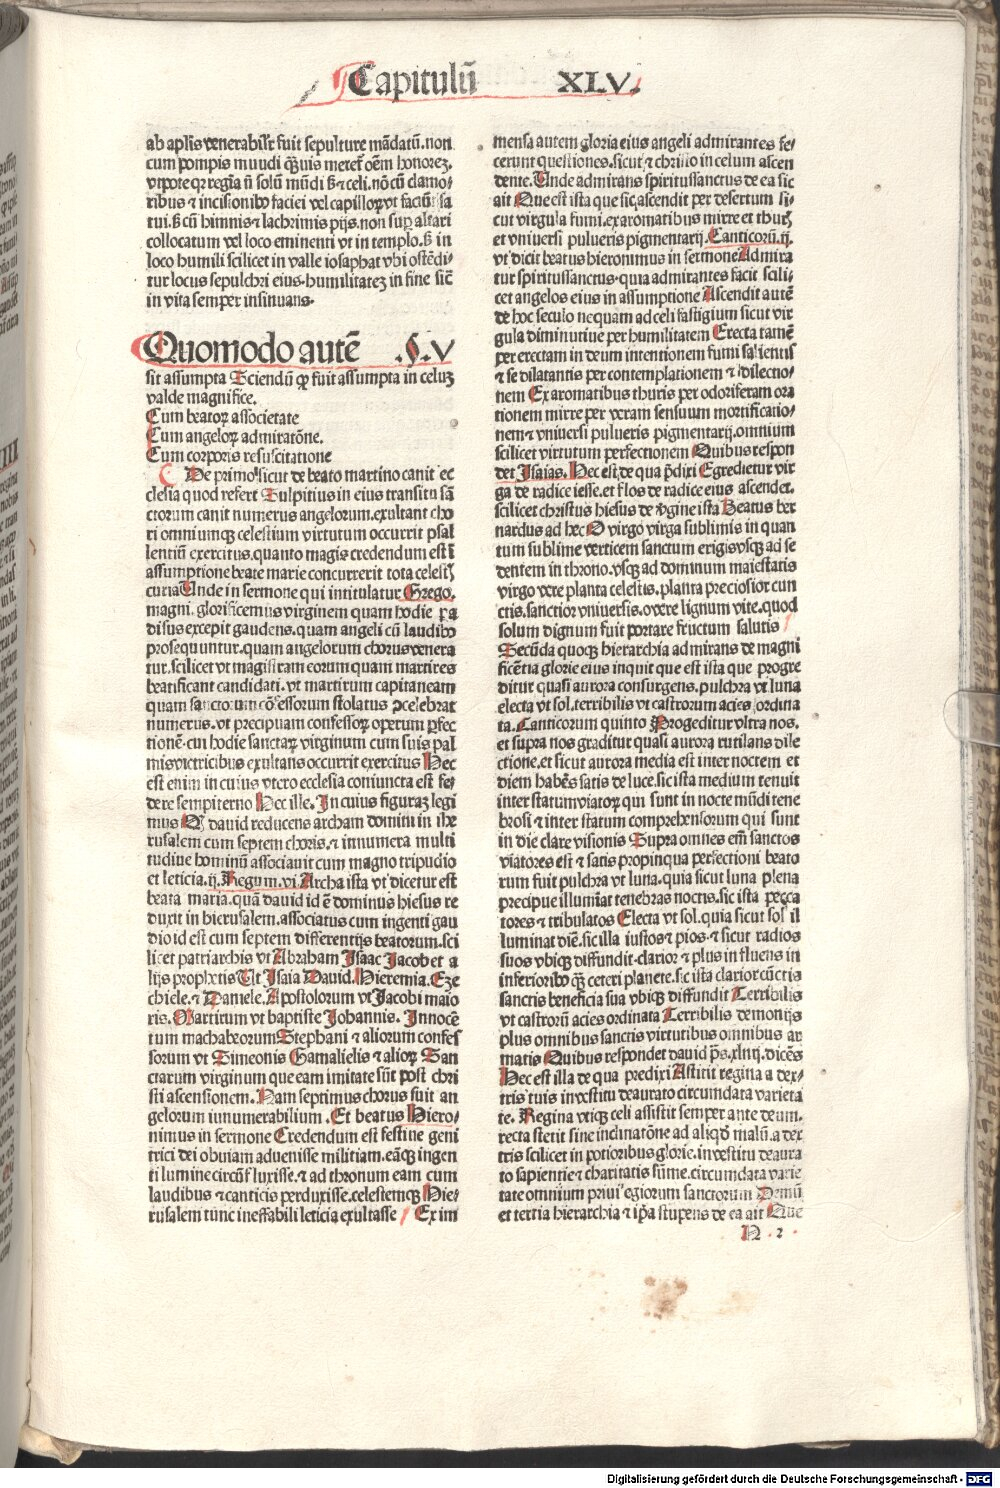 Capitulū XLV.
ab aplis venerabilr̄ fuit sepulture mādatū. non
cum pompis mundi q̄uis meret̄ oēm honorez.
vtpote qr regīa ñ solū mūdi s̄ ⁊ celi. nō cū clamo/
ribus ⁊ incisionib⁹ faciei vel capilloꝝ vt faciūt sa
tui. s̄ cū himnis ⁊ lachrimis pijs. non sup altari
collocatum vel loco eminenti vt in templo. s̄ in
loco humili scilicet in valle iosaphat vbi ostēdi/
tur locus sepulchri eius. humilitatez in fine sic̄
in vita semper insinuans.
Quomodo autē .§.V
sit assumpta Sciendū ꝙ fuit assumpta in celuꝫ
valde magnifice.
Cum beatoꝝ associetate
Cum angeloꝝ admiratōne.
Cum corporis resuscitatione
De primo sicut de beato martino canit ec
clesia quod refert Sulpitius in eius transitu sā
ctorum canit numerus angelorum. exultant cho
ri omniumqꝫ celestium virtutum occurrit psal
lentiū exercitus. quanto magis credendum est ī
assumptione beate marie concurrerit tota celestꝭ
curia Unde in sermone qui intitulatur Grego.
magni. glorificemus virginem quam hodie pa
disus excepit gaudens. quam angeli cū laudib⁹
prosequuntur. quam angelorum chorus venera
tur. scilicet vt magistram eorum quam martires
beatificant candidati. vt martirum capitaneam
quam sanctorum cōfessorum stolatus ꝯcelebrat
numerus. vt precipuam confessoꝝ operum ꝑfec
tionē. cui hodie sanctaꝝ virginum cum suis pal
mis victricibus exultans occurrit exercitus Hec
est enim in cuius vtero ecclesia coniuncta est fe/
dere sempiterno Hec ille. In cuius figuraꝫ legi
mus Q dauid reducens archam domini in ihe
rusalem cum septem choris. ⁊ innumera multi
tudine hominū associauit cum magno tripudio
et leticia. ij. Regum. vi. Archa ista vt dicetur est
beata maria. quā dauid id ē dominus hiesus re
duxit in hierusalem. associatus cum ingenti gau
dio id est cum septem differentijs beatorum. sci
licet patriarchis vt Abraham Isaac Jacob et a
lijs prophetis Ut Isaia Dauid. Hieremia. Eze
chiele. ⁊ Daniele. Apostolorum vt Jacobi maio
ris. Martirum vt baptiste Johannis. Innocē
tum machabeorum Stephani ⁊ aliorum confes
sorum vt Simeonis Gamalielis ⁊ alioꝝ San
ctarum virginum que eam imitate sūt post chri
sti ascensionem. Nam septimus chorus fuit an
gelorum innumerabilium. Et beatus Hiero/
nimus in sermone Credendum est festine geni
trici dei obuiam aduenisse militiam. eāqꝫ ingen
ti lumine circūfluxisse. ⁊ ad thronum eam cum
laudibus ⁊ canticis perduxisse. celestemqꝫ Hie/
rusalem tunc ineffabili leticia exultasse Ex im
mensa autem gloria eius angeli admirantes fe/
cerunt questiones. sicut ⁊ christo in celum ascen
dente. Unde admirans spiritussanctus de ea sic
ait Que est ista que sic ascendit per desertum si/
cut virgula fumi. ex aromatibus mirre et thurꝭ
et vniuersi pulueris pigmentarij. Canticorū. ij.
vt dicit beatus hieronimus in sermone Admira
tur spiritussanctus. quia admirantes facit scili/
cet angelos eius in assumptione Ascendit autē
de hoc seculo nequam ad celi fastigium sicut vir
gula diminutiue per humilitatem Erecta tamē
per erectam in deum intentionem fumi salientis
⁊ se dilatantis per contemplationem ⁊ dilectio/
nem Ex aromatibus thuris per odoriferam ora
tionem mirre per veram sensuum mortificatio/
nem ⁊ vniuersi pulueris pigmentarij. omnium
scilicet virtutum perfectionem Quibus respon
det Isaias. Hec est. de qua p̄dixi Egredietur vir
ga de radice iesse. et flos de radice eius ascendet.
scilicet christus hiesus de v̄gine ista Beatus ber
nardus ad hec O virgo virga sublimis in quan
tum sublime verticem sanctum erigis vsqꝫ ad se
dentem in throno. vsqꝫ ad dominum maiestatis
virgo vere planta celestis. planta preciosior cun
ctis. sanctior vniuersis. o vere lignum vite. quod
solum dignum fuit portare fructum salutis
Secūda quoqꝫ hierarchia admirans de magni
ficētia glorie eius inquit que est ista que progre
ditur quasi aurora consurgens. pulchra vt luna
electa vt sol. terribilis vt castrorum acies ordina
ta. Canticorum quinto Progeditur vltra nos.
et supra nos graditur quasi aurora rutilans dile
ctione. et sicut aurora media est inter noctem et
diem habēs satis de luce. sic ista medium tenuit
inter statum viatoꝝ qui sunt in nocte mūdi tene
brosi ⁊ inter statum comprehensorum qui sunt
in die clare visionis Supra omnes em̄ sanctos
viatores est ⁊ satis propinqua perfectioni beato
rum fuit pulchra vt luna. quia sicut luna plena
precipue illumīat tenebras noctis. sic ista pecca
tores ⁊ tribulatos Electa vt sol. quia sicut sol il
luminat diē. sic illa iustos ⁊ pios. ⁊ sicut radios
suos vbiqꝫ diffundit. clarior ⁊ plus influens in
inferiorib⁹ qꝫ ceteri planete. sic ista clarior cūctis
sanctis beneficia sua vbiqꝫ diffundit Terribilis
vt castrorū acies ordinata Terribilis demonijs
plus omnibus sanctis virtutibus omnibus ar
matis Quibus respondet dauid ps̄. xliiij. dicēs
Hec est illa de qua predixi Astitit regina a dex/
tris tuis in vestitu deaurato circumdata varieta
te. Regina vtiqꝫ celi assistit semper ante deum.
recta stetit sine inclinatōne ad aliqd̓ malū. a dex
tris scilicet in potioribus glorie. in vestitu deaura
to sapientie ⁊ charitatis sūme. circumdata varie
tate omnium priuilegiorum sanctorum Demū
et tertia hierarchia ⁊ ip̄a stupens de ea ait Que
N 2
Digitalisierung gefördert durch die Deutsche Forschungsgemeinschaft - DFG